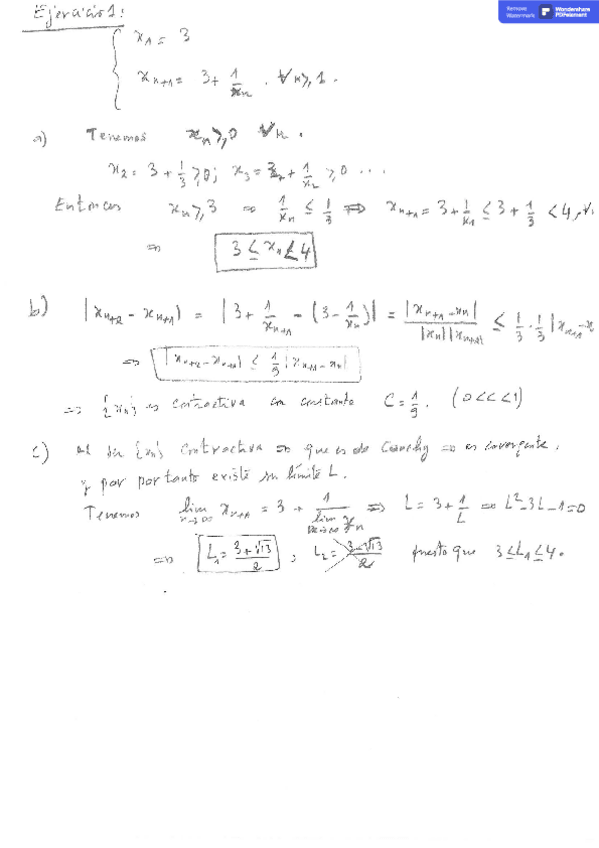 Remove Watermark Wondershare PDFelement
Ejercicio 1:
x₁ = 3
xₙ₊₁ = 3 + 1/xₙ . ∀n ≥ 1.
a) Tenemos xₙ ≥ 0 ∀n.
x₂ = 3 + 1/3 ≥ 0; x₃ = 3 + 1/x₂ ≥ 0 ...
Entonces xₙ ≥ 3 ⇒ 1/xₙ ≤ 1/3 ⇒ xₙ₊₁ = 3 + 1/xₙ ≤ 3 + 1/3 < 4,
⇒ 3 ≤ xₙ ≤ 4
b) |xₙ₊₂ - xₙ₊₁) = |3 + 1/xₙ₊₁ - (3 - 1/xₙ)| = |xₙ₊₁ - xₙ| / |xₙ||xₙ₊₁| ≤ 1/3 · 1/3 |xₙ₊₁ - x
⇒ |xₙ₊₂ - xₙ₊₁| ≤ 1/9 |xₙ₊₁ - xₙ|
⇒ {xₙ} es contractiva con constante C = 1/9. (0 < C < 1)
c) Al ser {xₙ} contractiva ⇒ que es de Cauchy ⇒ es convergente.
y por por tanto existe su límite L.
Tenemos lim n→∞ xₙ₊₁ = 3 + 1/lim n→∞ xₙ ⇒ L = 3 + 1/L ⇒ L² - 3L - 1 = 0
⇒ L₁ = 3 + √13 / 2 ; L₂ = 3 - √13 / 2 puesto que 3 ≤ L₁ ≤ 4.